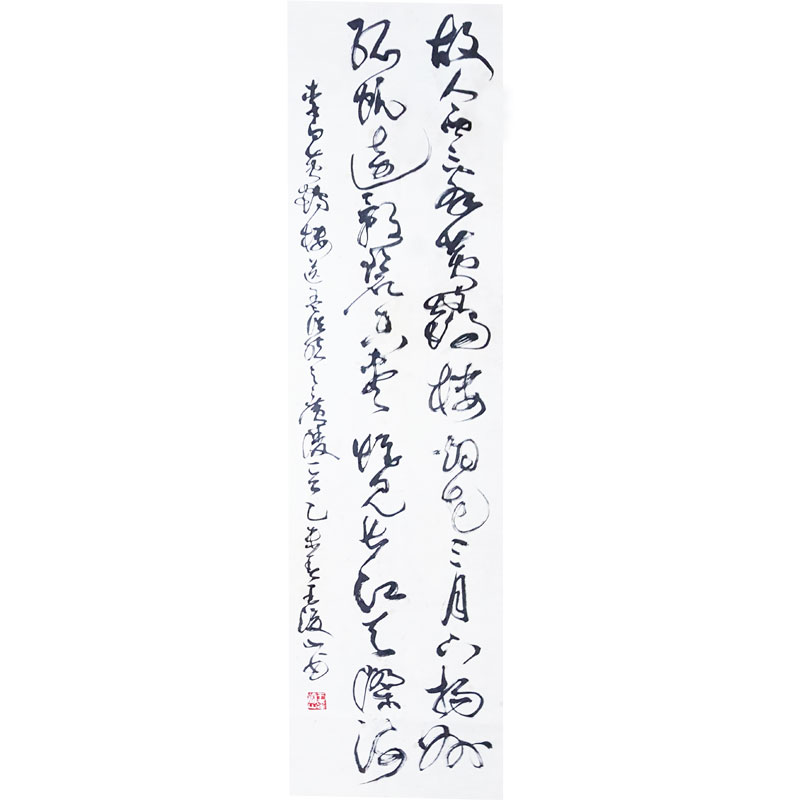 故人西辞黄鹤楼烟花三月下扬州
孤帆远影碧空尽惟见长江天际流
李白黄鹤楼送孟浩然之广陵一首乙未春王滨山书